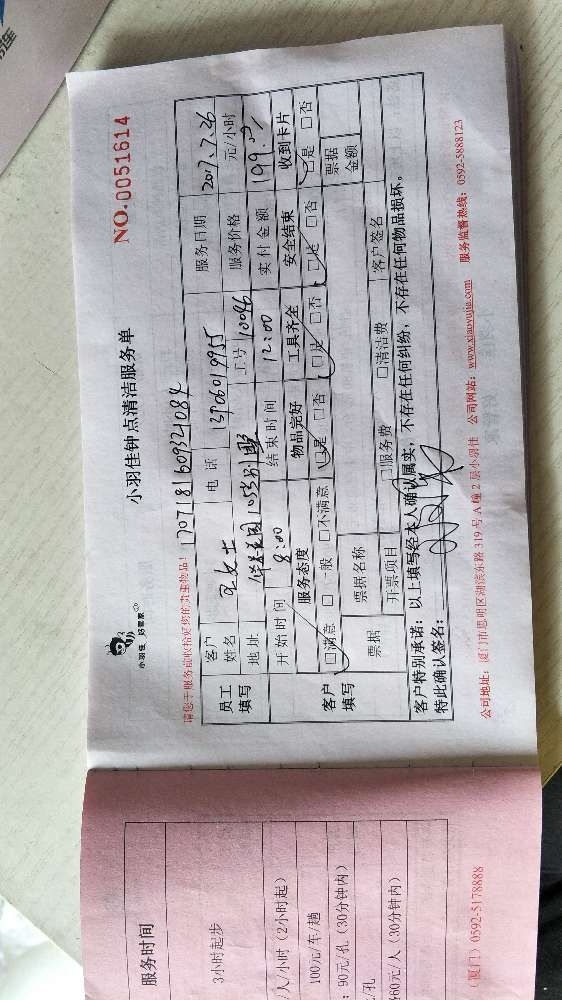 小羽佳 好管家
小羽佳钟点清洁服务单
NO.0051614
请您于服务前收拾好您的贵重物品!
1707181609321084
员工填写 客户姓名 女士 电话 13906019955 服务日期 2017.7.26
地址 工号 10046 服务价格 元/小时
开始时间 8:00 结束时间 12:00 实付金额 199
客户填写 服务态度 物品完好 工具齐全 安全结束 收到卡片
□满意 □一般 □不满意 □是 □否 □是 □否 □是 □否 □是 □否
票据 票据名称 票据金额
开票项目 □服务费 □清洁费 客户签名
客户特别承诺：以上填写经本人确认属实，不存在任何纠纷，不存在任何物品损坏。
特此确认签名：
公司地址：厦门市思明区湖滨东路319号A幢2层小羽佳 公司网站：www.xiaoyujia.com 服务监督热线：0592-5888123
服务时间
3小时起步
/人/小时（2小时起）
100元/车/趟
：90元/孔（30分钟内）
/孔
360元/人（30分钟内）
（厦门）0592-5178888